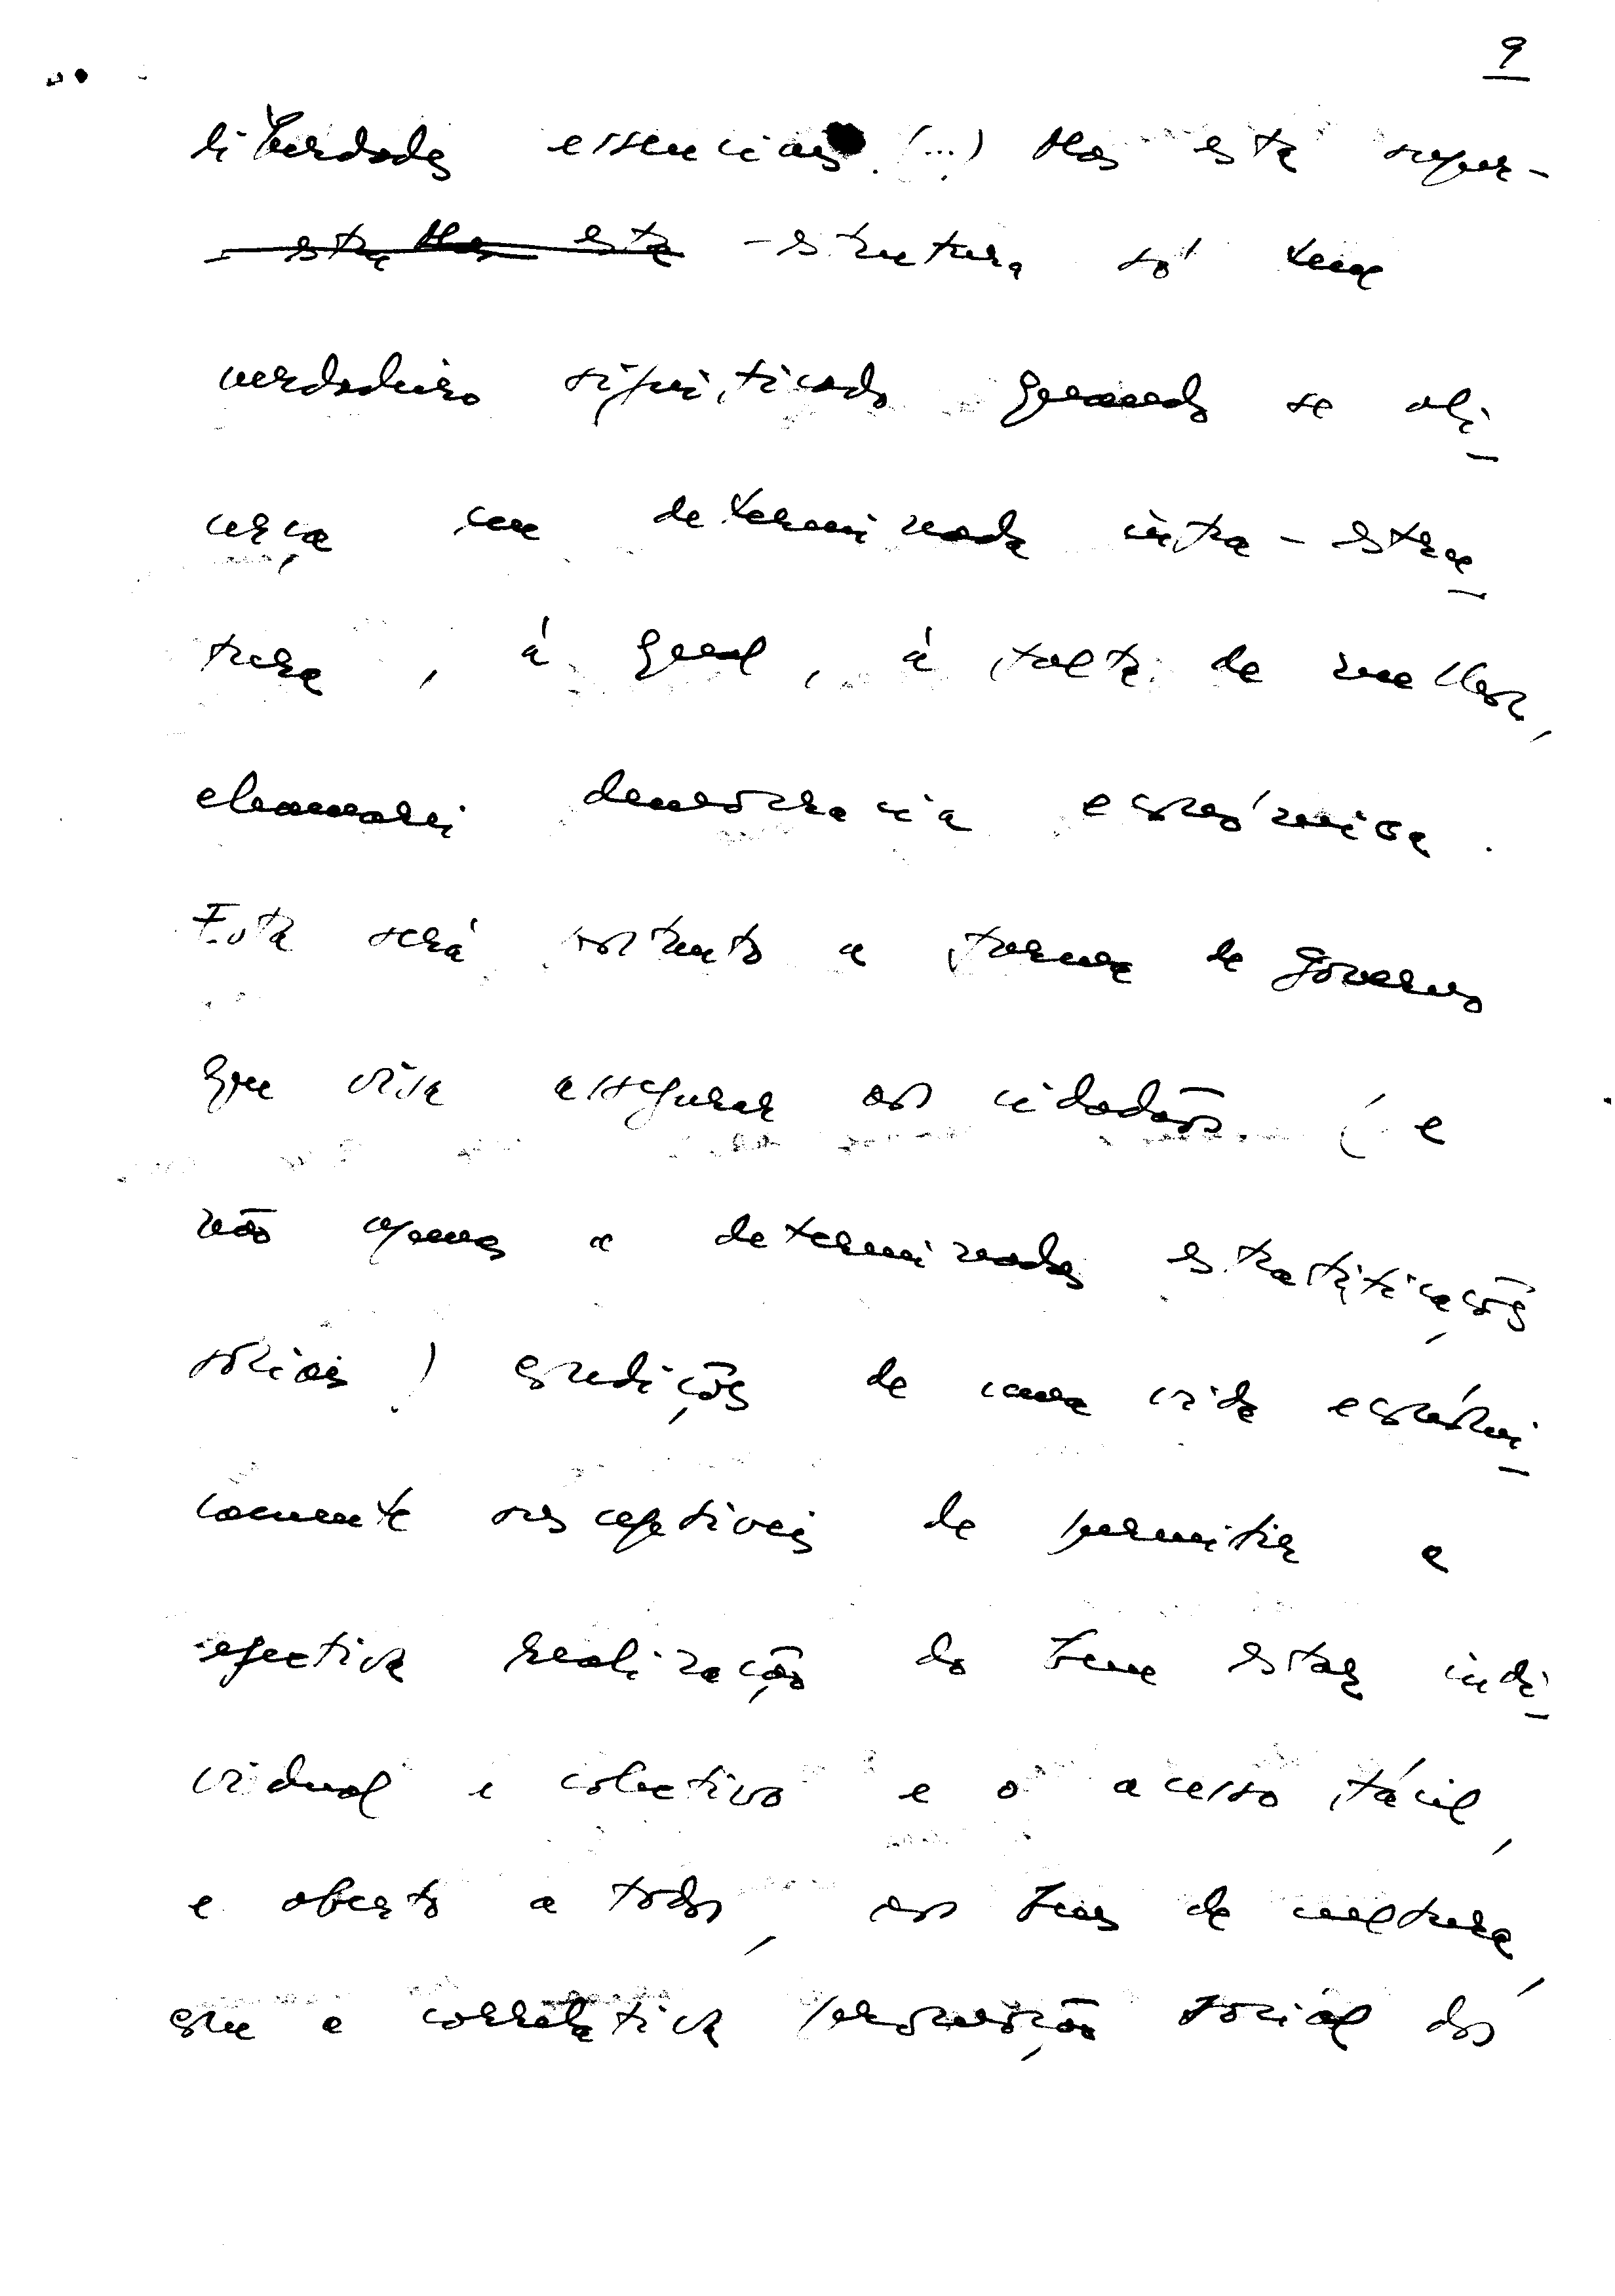 9
liberdades essenciais. (...) Mas esta super-
- esta Mas esta -estrutura só tem
verdadeiro significado quando se ali-
cerça em determinada infra-estru-
tura, à qual, à falta de melhor,
chamarei democracia económica.
Esta será portanto a forma de governo
que visa assegurar aos cidadãos (e
não apenas a determinadas estratificações
sociais) condições de uma vida económi-
camente susceptíveis de permitir a
efectiva realização do bem estar indi-
vidual e colectivo e o acesso fácil,
e aberto a todos, aos bens de cultura,
com a correlativa promoção social dos